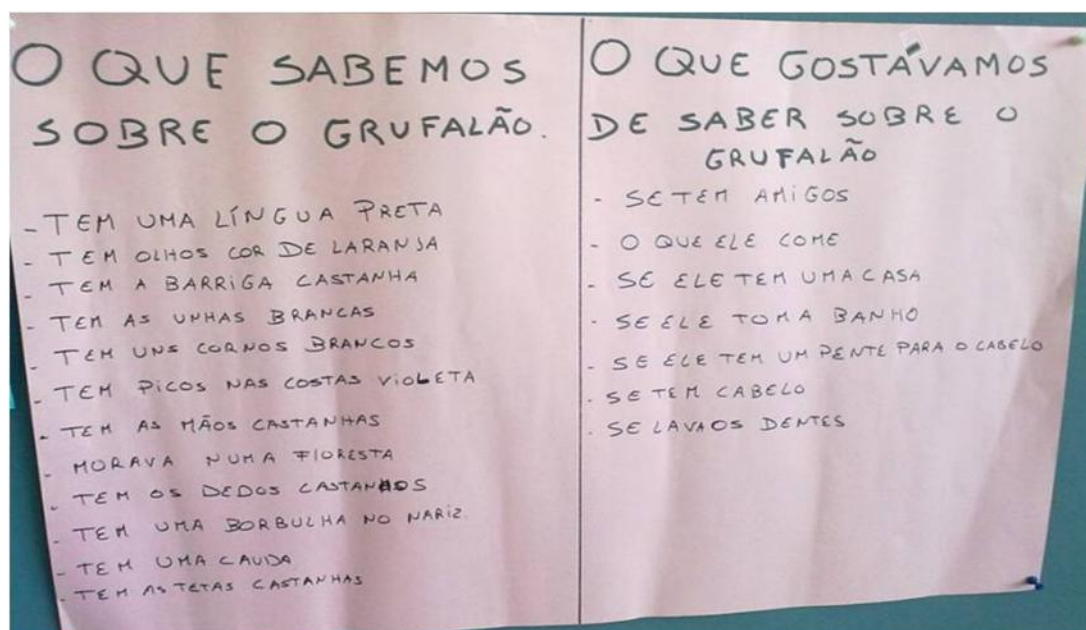 O QUE SABEMOS
SOBRE O GRUFALÃO.
- TEM UMA LÍNGUA PRETA
- TEM OLHOS COR DE LARANJA
- TEM A BARRIGA CASTANHA
- TEM AS UNHAS BRANCAS
- TEM UNS CORNOS BRANCOS
- TEM PICOS NAS COSTAS VIOLETA
- TEM AS MÃOS CASTANHAS
- MORAVA NUMA FLORESTA
- TEM OS DEDOS CASTANHOS
- TEM UMA BORBULHA NO NARIZ.
- TEM UMA CAUDA
- TEM AS TETAS CASTANHAS
O QUE GOSTÁVAMOS
DE SABER SOBRE O
GRUFALÃO
- SE TEM AMIGOS
- O QUE ELE COME
- SE ELE TEM UMA CASA
- SE ELE TOMA BANHO
- SE ELE TEM UM PENTE PARA O CABELO
- SE TEM CABELO
- SE LAVA OS DENTES